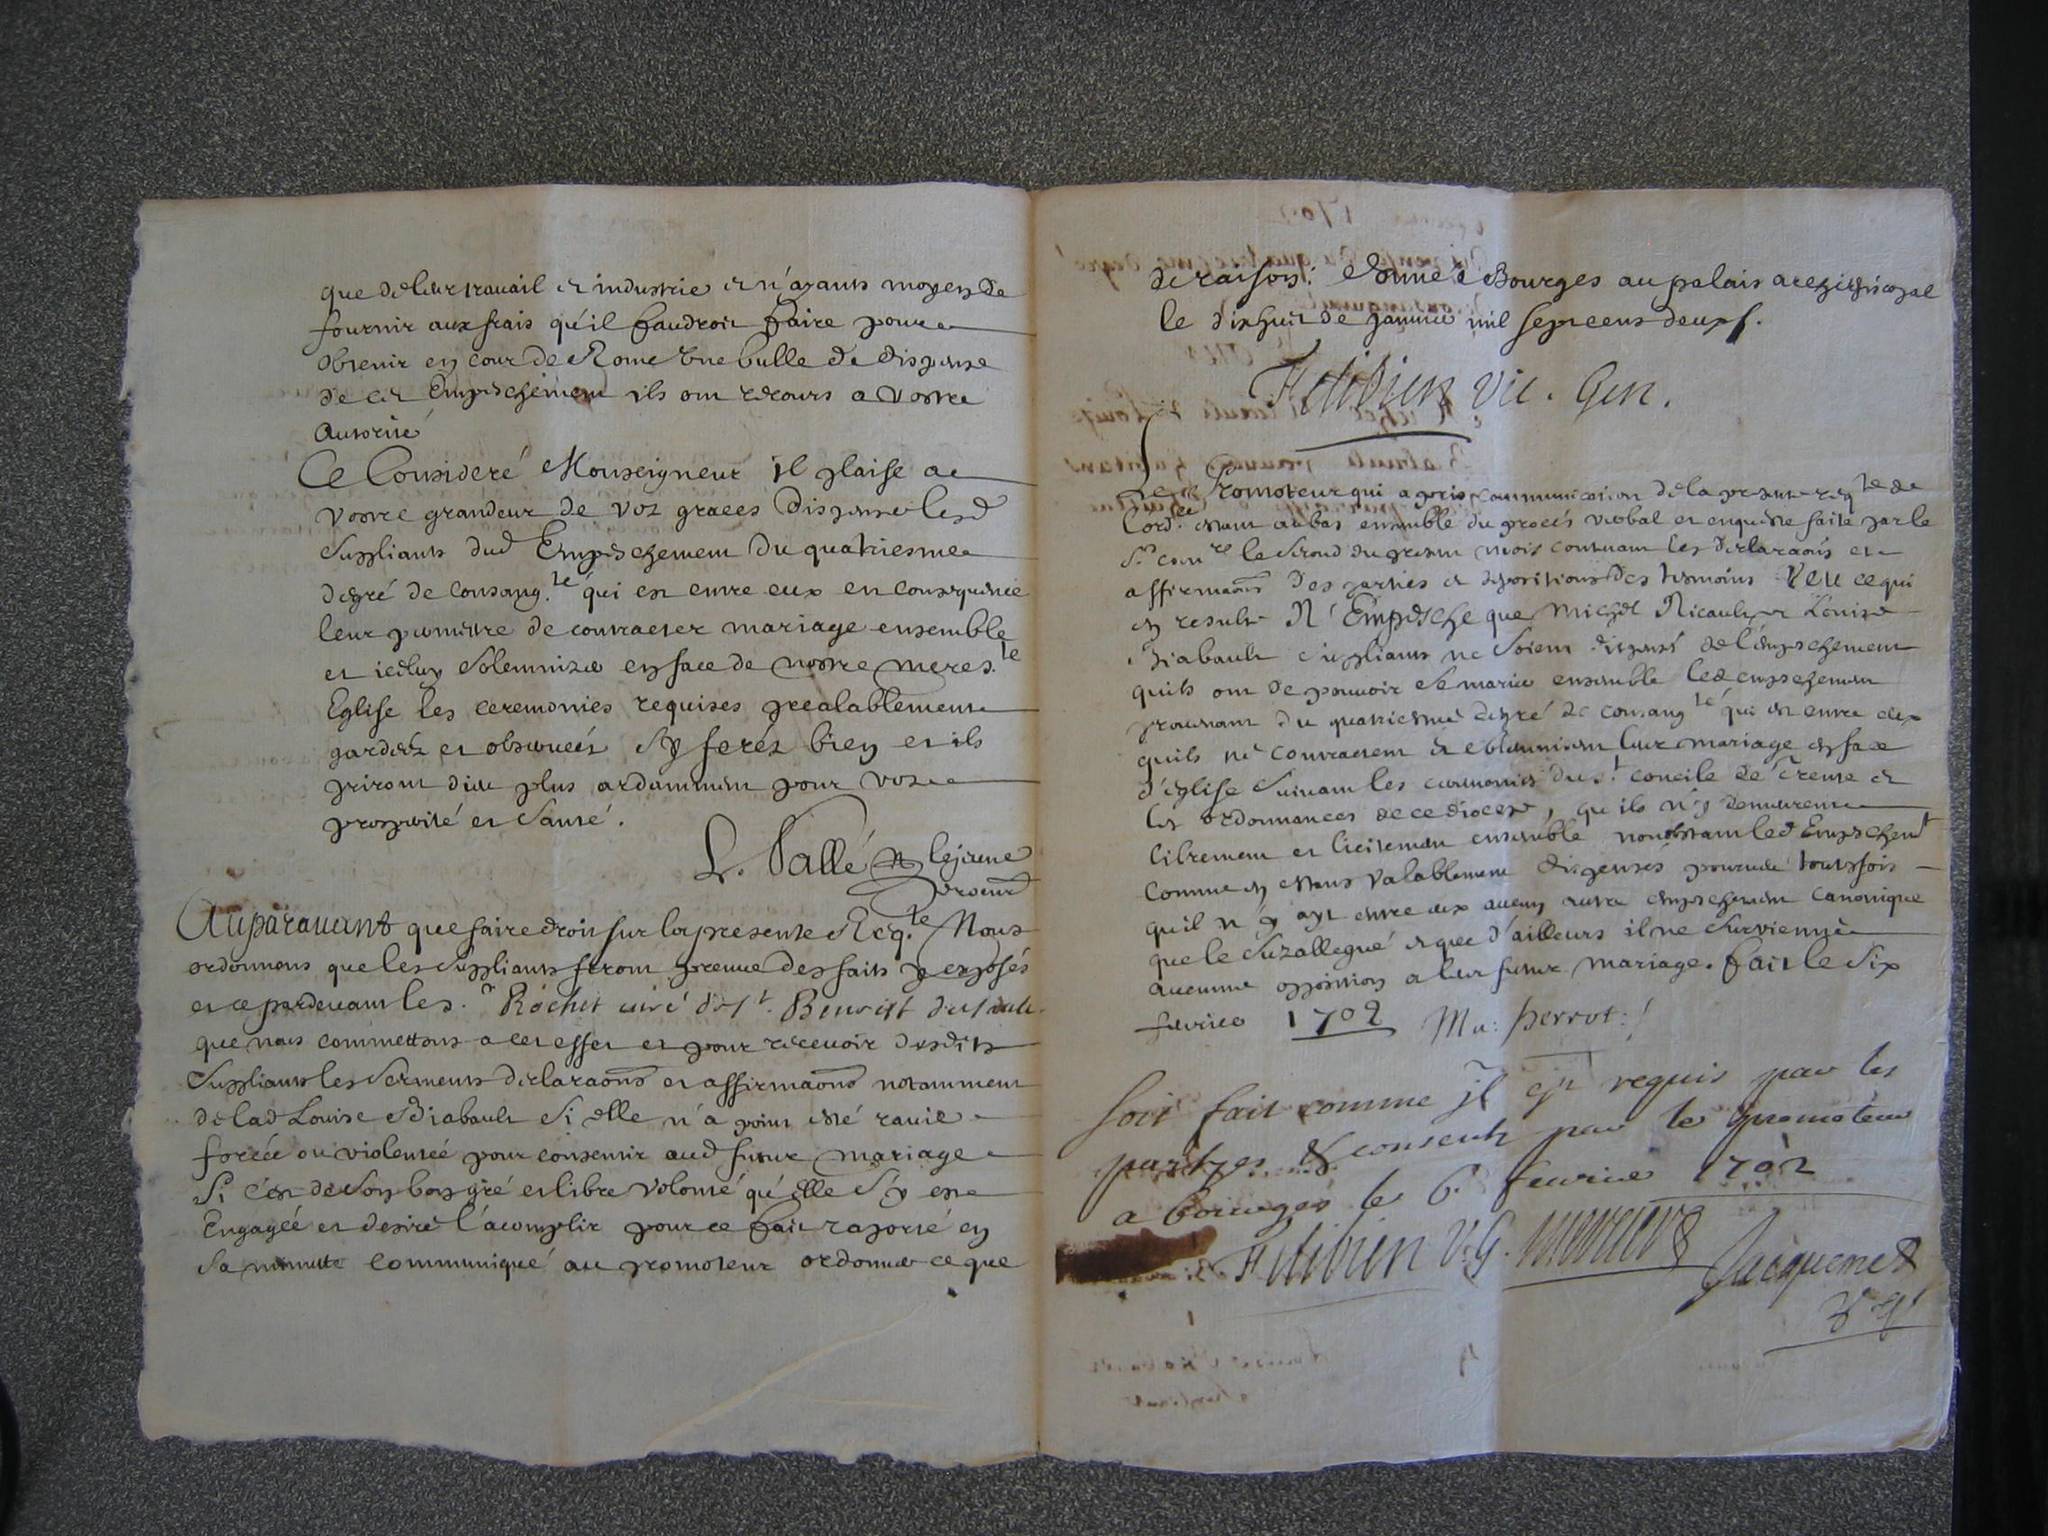 que de leur travail et industrie et n'ayants moyen de
fournir aux frais qu'il faudroit faire pour
obtenir en cour de Rome une bulle de dispense
de cet Empeschement ils ont recours a vostre
Autorité
Ce Consideré Monseigneur Il plaise a
vostre grandeur de voz graces dispenser lesd
suppliants dud Empeschement du quatriesme
degré de consang.té qui est entre eux en consequence
leur permettre de contracter mariage ensemble
et icelluy solemnizer en face de nostre mere s.te
Eglise les ceremonies requises prealablement
gardées et observées Sy ferez bien et ils
priront dieu plus ardamment pour vostre
prosperité et santé.
L. Vallé Lejeune
procur
Auparavant que faire droit sur la presente Req.te Nous
ordonnons que les suppliants feront preuve des faits y exposés
et ce pardevant le s.r Rochet curé de s.t Benoist du sault
que nous commettons a cet effet et pour recevoir desdits
suppliants les serments declaraons et affirmaons notamment
de lad Louise Biabault si elle n'a point esté ravie
forcée ou violentée pour consentir aud futur mariage
si c'est de son bon gré et libre volonté qu'elle s'y est
Engagée et desire l'acomplir pour ce fait raporté en
sa minutte communiqué au promoteur ordonner ce que
de raison. donné a Bourges au palais archiepiscopal
le dixhuit de janvier mil sept cens deux.
Felibien vic. Gen.
Le Promoteur qui a pris communication de la presente req.te de
l'ord.ce estant au bas ensemble du procés verbal et enqueste faite par le
s.r com.re le second du present mois contenant les declaraons et
affirmaons des parties et depositions des tesmoins Veu ce qui
en resulte N'Empesche que Michel Nicault et Louise
Biabault suppliants ne soient dispensé de l'empeschement
quils ont de pouvoir se marier ensemble led empeschement
provenant du quatriesme degré de consang.té qui est entre eux
quils ne contractent et solemnisent leur mariage en face
d'Eglise suivant les ceremonies du s.t concile de Trente et
les ordonnances de ce diocese, qu'ils n'y demeurent
librement et licitement ensemble nonobstant led Empeschem.t
comme en estant valablement dispensés pourveu touttefois
qu'il n'y ayt entre eux aucun autre empeschement canonique
que le susallegué et que d'ailleurs il ne survienne
aucunne opposition a leur futur mariage. fait le six
febvrier 1702 Perrot
Soit fait comme jl est requis par les
partyes & consenti par le promoteur
a bourges le 6.e feuvrier 1702
Felibien V.G. Jacquemet
V G